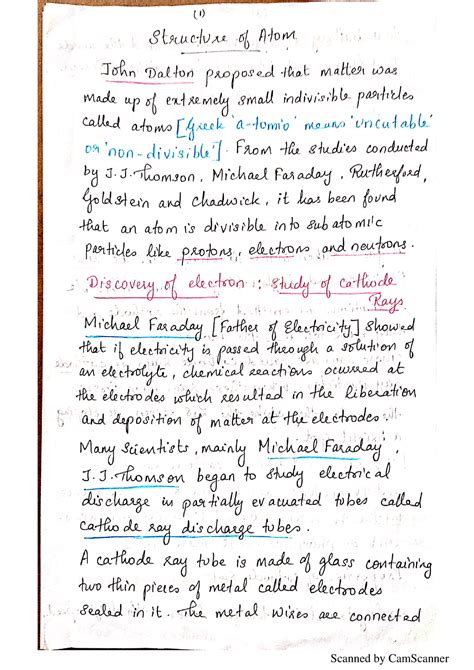 (1)
Structure of Atom
John Dalton proposed that matter was
made up of extremely small indivisible particles
called atoms [Greek 'a-tomio' means 'uncutable'
or 'non-divisible']. From the studies conducted
by J.J.Thomson, Michael Faraday, Rutherford,
Goldstein and Chadwick, it has been found
that an atom is divisible into subatomic
particles like protons, electrons and neutrons.
Discovery of electron : Study of cathode
Rays
Michael Faraday [Father of Electricity] showed
that if electricity is passed through a solution of
an electrolyte, chemical reactions ocurred at
the electrodes which resulted in the liberation
and deposition of matter at the electrodes.
Many Scientists, mainly Michael Faraday,
J.J.Thomson began to study electrical
discharge in partially evacuated tubes called
cathode ray discharge tubes.
A cathode ray tube is made of glass containing
two thin pieces of metal called electrodes
sealed in it. The metal wires are connected
Scanned by CamScanner